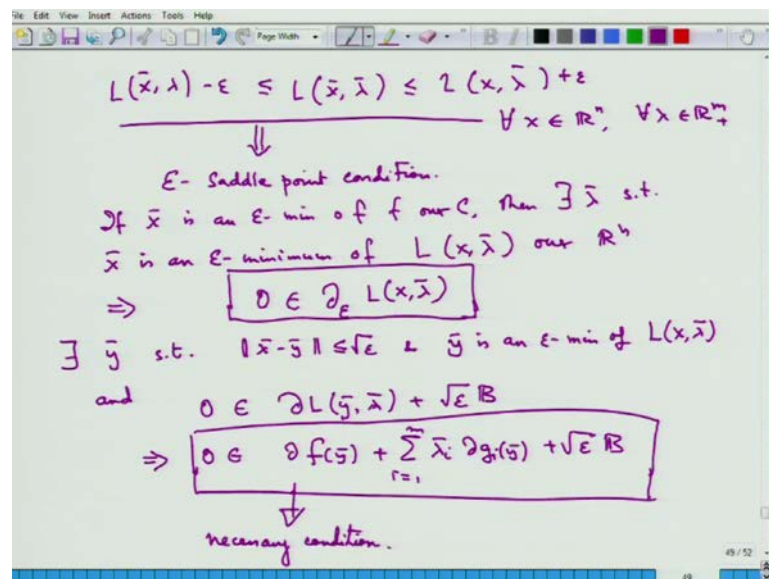 File Edit View Insert Actions Tools Help
Page Width
L(x̄, λ) - ε ≤ L(x̄, λ̄) ≤ L(x, λ̄) + ε
∀ x ∈ ℝⁿ, ∀ λ ∈ ℝᵐ₊
⇓
ε- Saddle point condition.
If x̄ is an ε- min of f over C, then ∃ λ̄ s.t.
x̄ is an ε- minimum of L(x, λ̄) over ℝⁿ
⇒ 0 ∈ ∂_ε L(x, λ̄)
∃ ȳ s.t. ‖x̄ - ȳ‖ ≤ √ε & ȳ is an ε- min of L(x, λ̄)
and 0 ∈ ∂L(ȳ, λ̄) + √ε 𝔹
⇒ 0 ∈ ∂f(ȳ) + ∑_{i=1}^{m} λ̄ᵢ ∂gᵢ(ȳ) + √ε 𝔹
necessary condition.
49 / 52
49